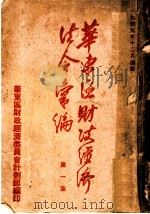 一九四九年十二月編
華東區財政經濟
法令彙編
第一輯
華東區財政經濟委員會計劃部編印